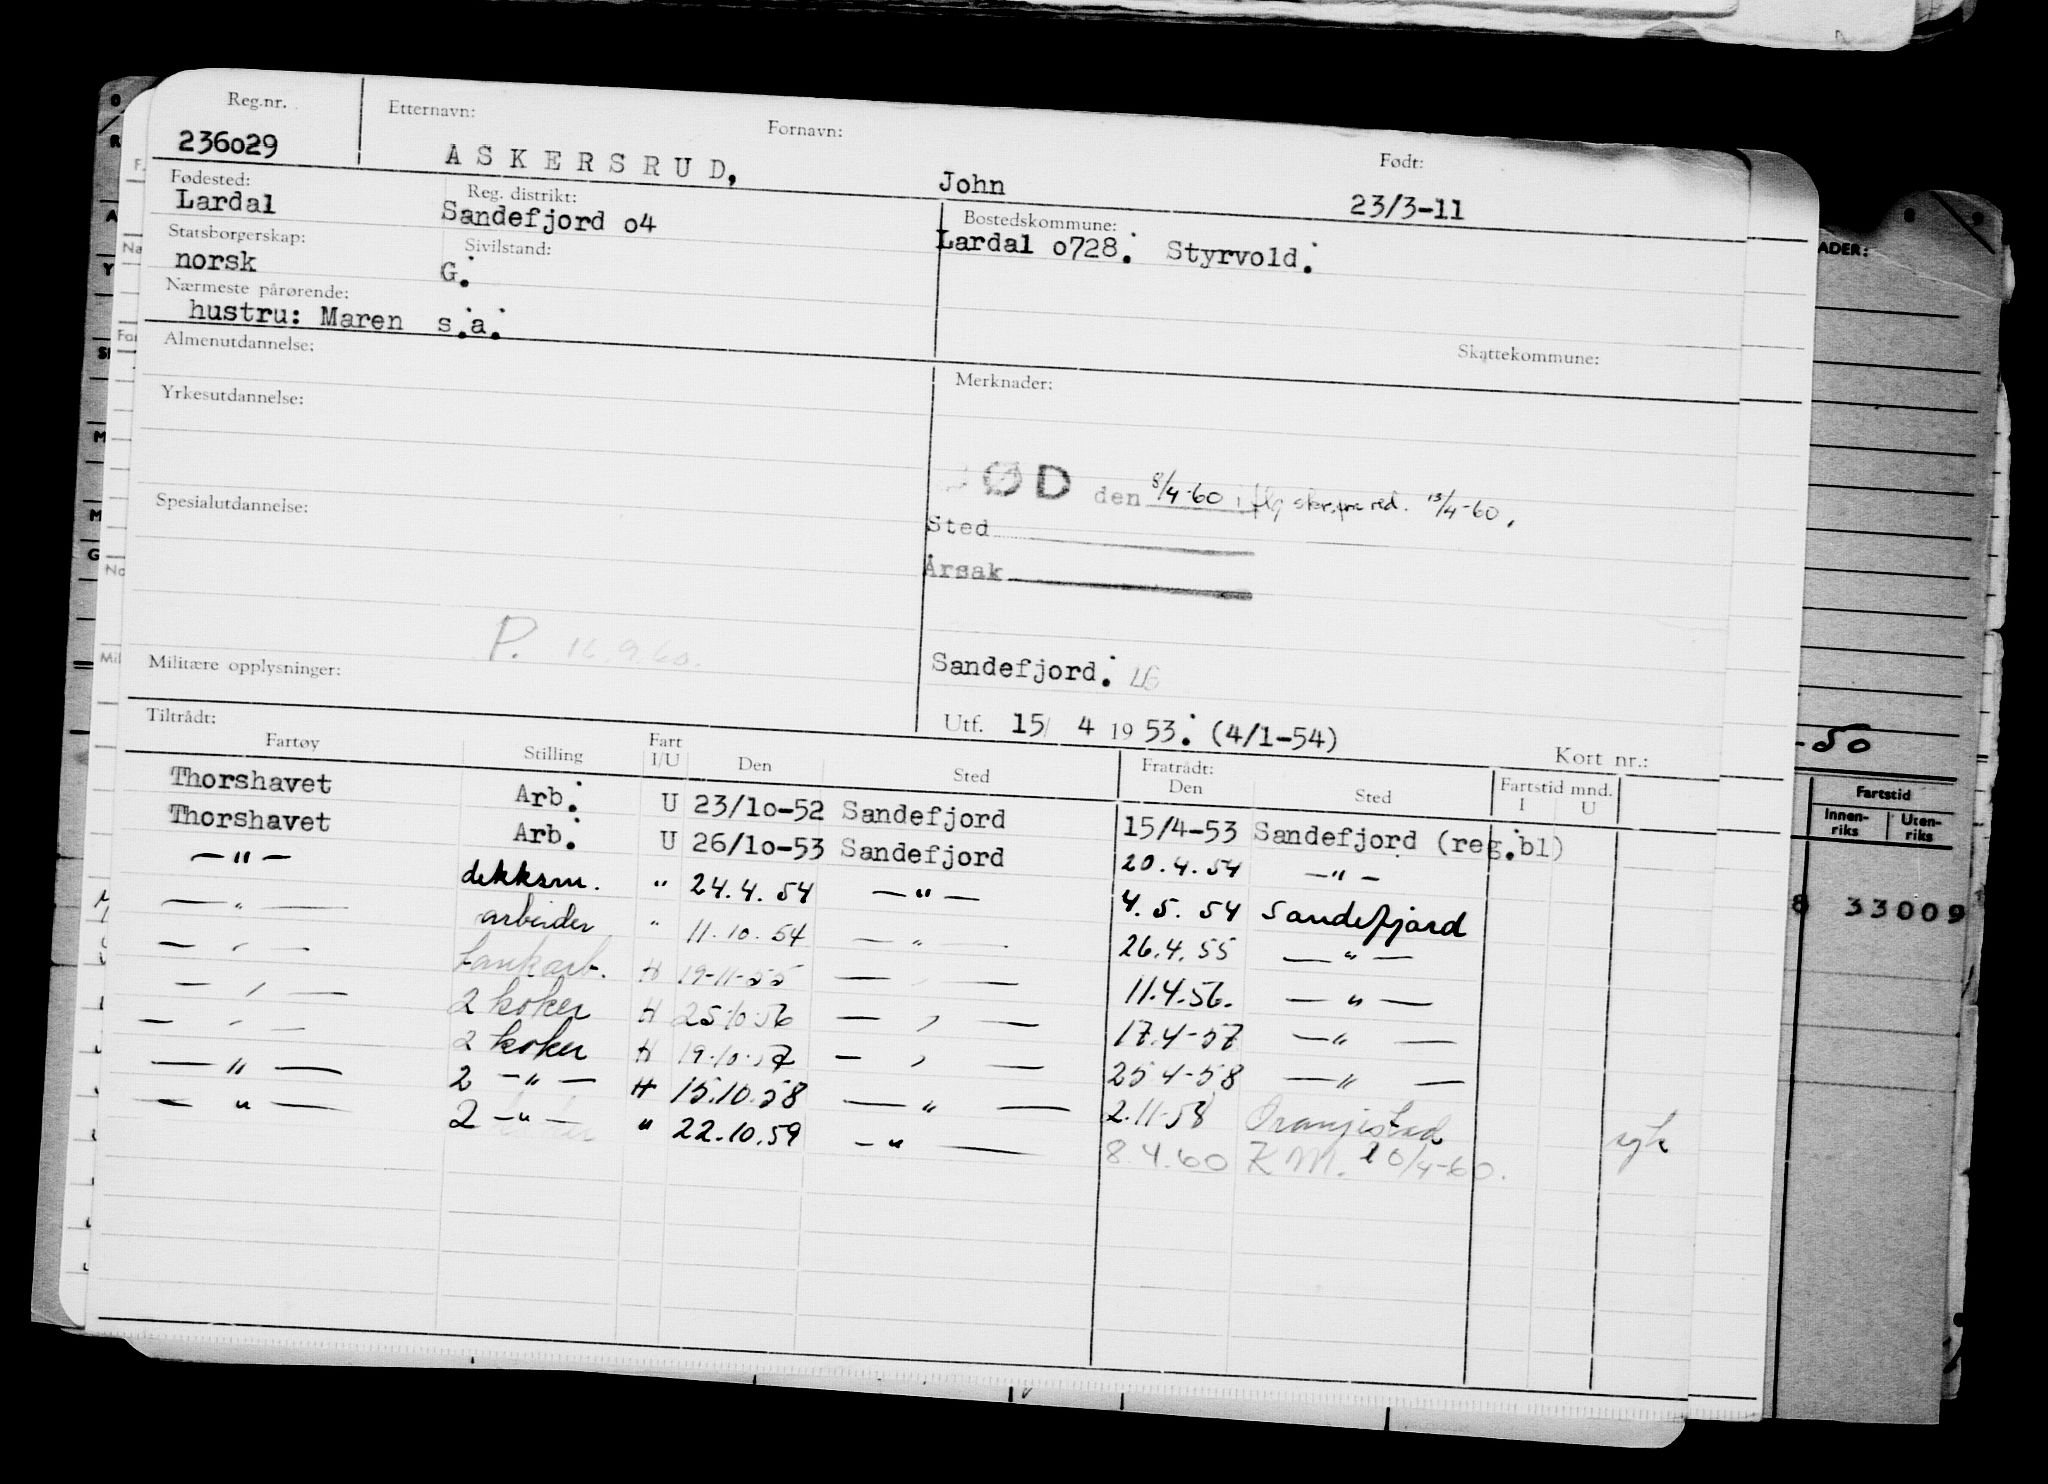 Reg.nr. Etternavn: Fornavn: Født:
236029 ASKERSRUD, John 23/3-11
Fødested: Reg. distrikt: Bostedskommune:
Lardal Sandefjord o4 Lardal o728. Styrvold.
Statsborgerskap: Sivilstand:
norsk G.
Nærmeste pårørende:
hustru: Maren s.a.
Skattekommune:
Almenutdannelse: Merknader:
Yrkesutdannelse:
ØD den 8/4-60 iflg skr. fra red. 13/4-60.
Spesialutdannelse: Sted
Årsak
P. 16.9.60.
Militære opplysninger: Sandefjord.
Utf. 15/ 4 1953. (4/1-54) Kort nr.:
Tiltrådt: Fratrådt: Fartstid mnd.
Fartøy Stilling Fart I/U Den Sted Den Sted I U
Thorshavet Arb. U 23/10-52 Sandefjord 15/4-53 Sandefjord (reg.bl)
Thorshavet Arb. U 26/10-53 Sandefjord 20.4.54 —"—
—"— dekksm. " 24.4.54 —"— 4.5.54 Sandefjord
—"— arbeider " 11.10.54 —"— 26.4.55 —"—
—"— tankarb. H 19-11-55 —"— 11.4.56. —"—
—"— 2 koker H 25.10.56 —"— 17.4-57 —"—
—"— 2 koker H 19.10.57 —"— 25.4-58 —"—
—"— 2 —"— H 15.10.58 —"— 2.11-58 Oranjestad syk
—"— 2 —"— " 22.10.59 —"— 8.4.60 K.M. 20/4-60.
ADER:
-50
Fartstid
Innen-riks Uten-riks
8 33009